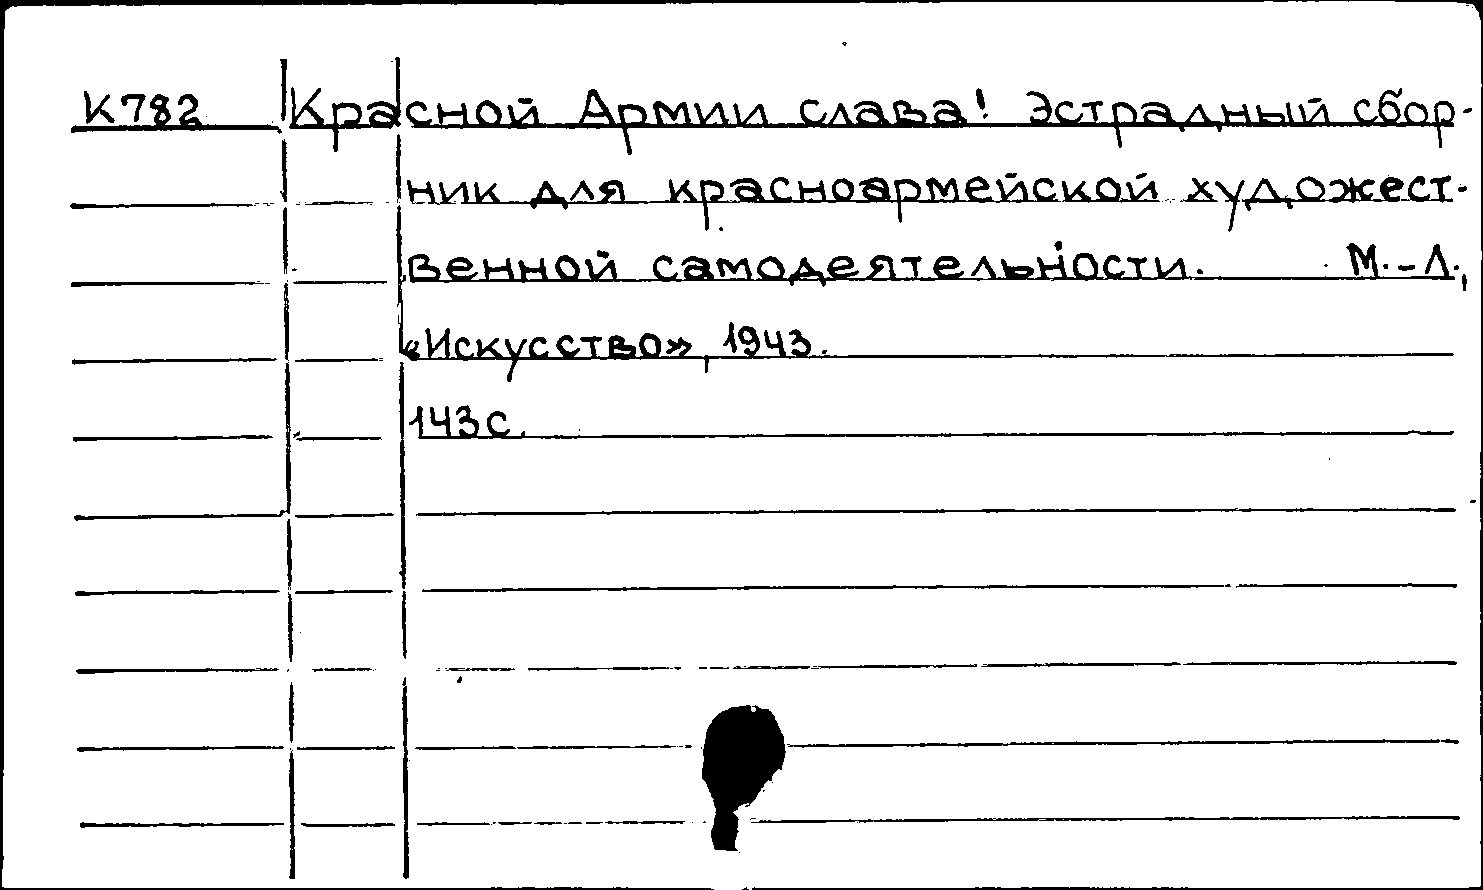 К782 Красной Армии слава! Эстрадный сбор-
ник для красноармейской художест-
венной самодеятельности. М.-Л.,
«Искусство», 1943.
143 с.